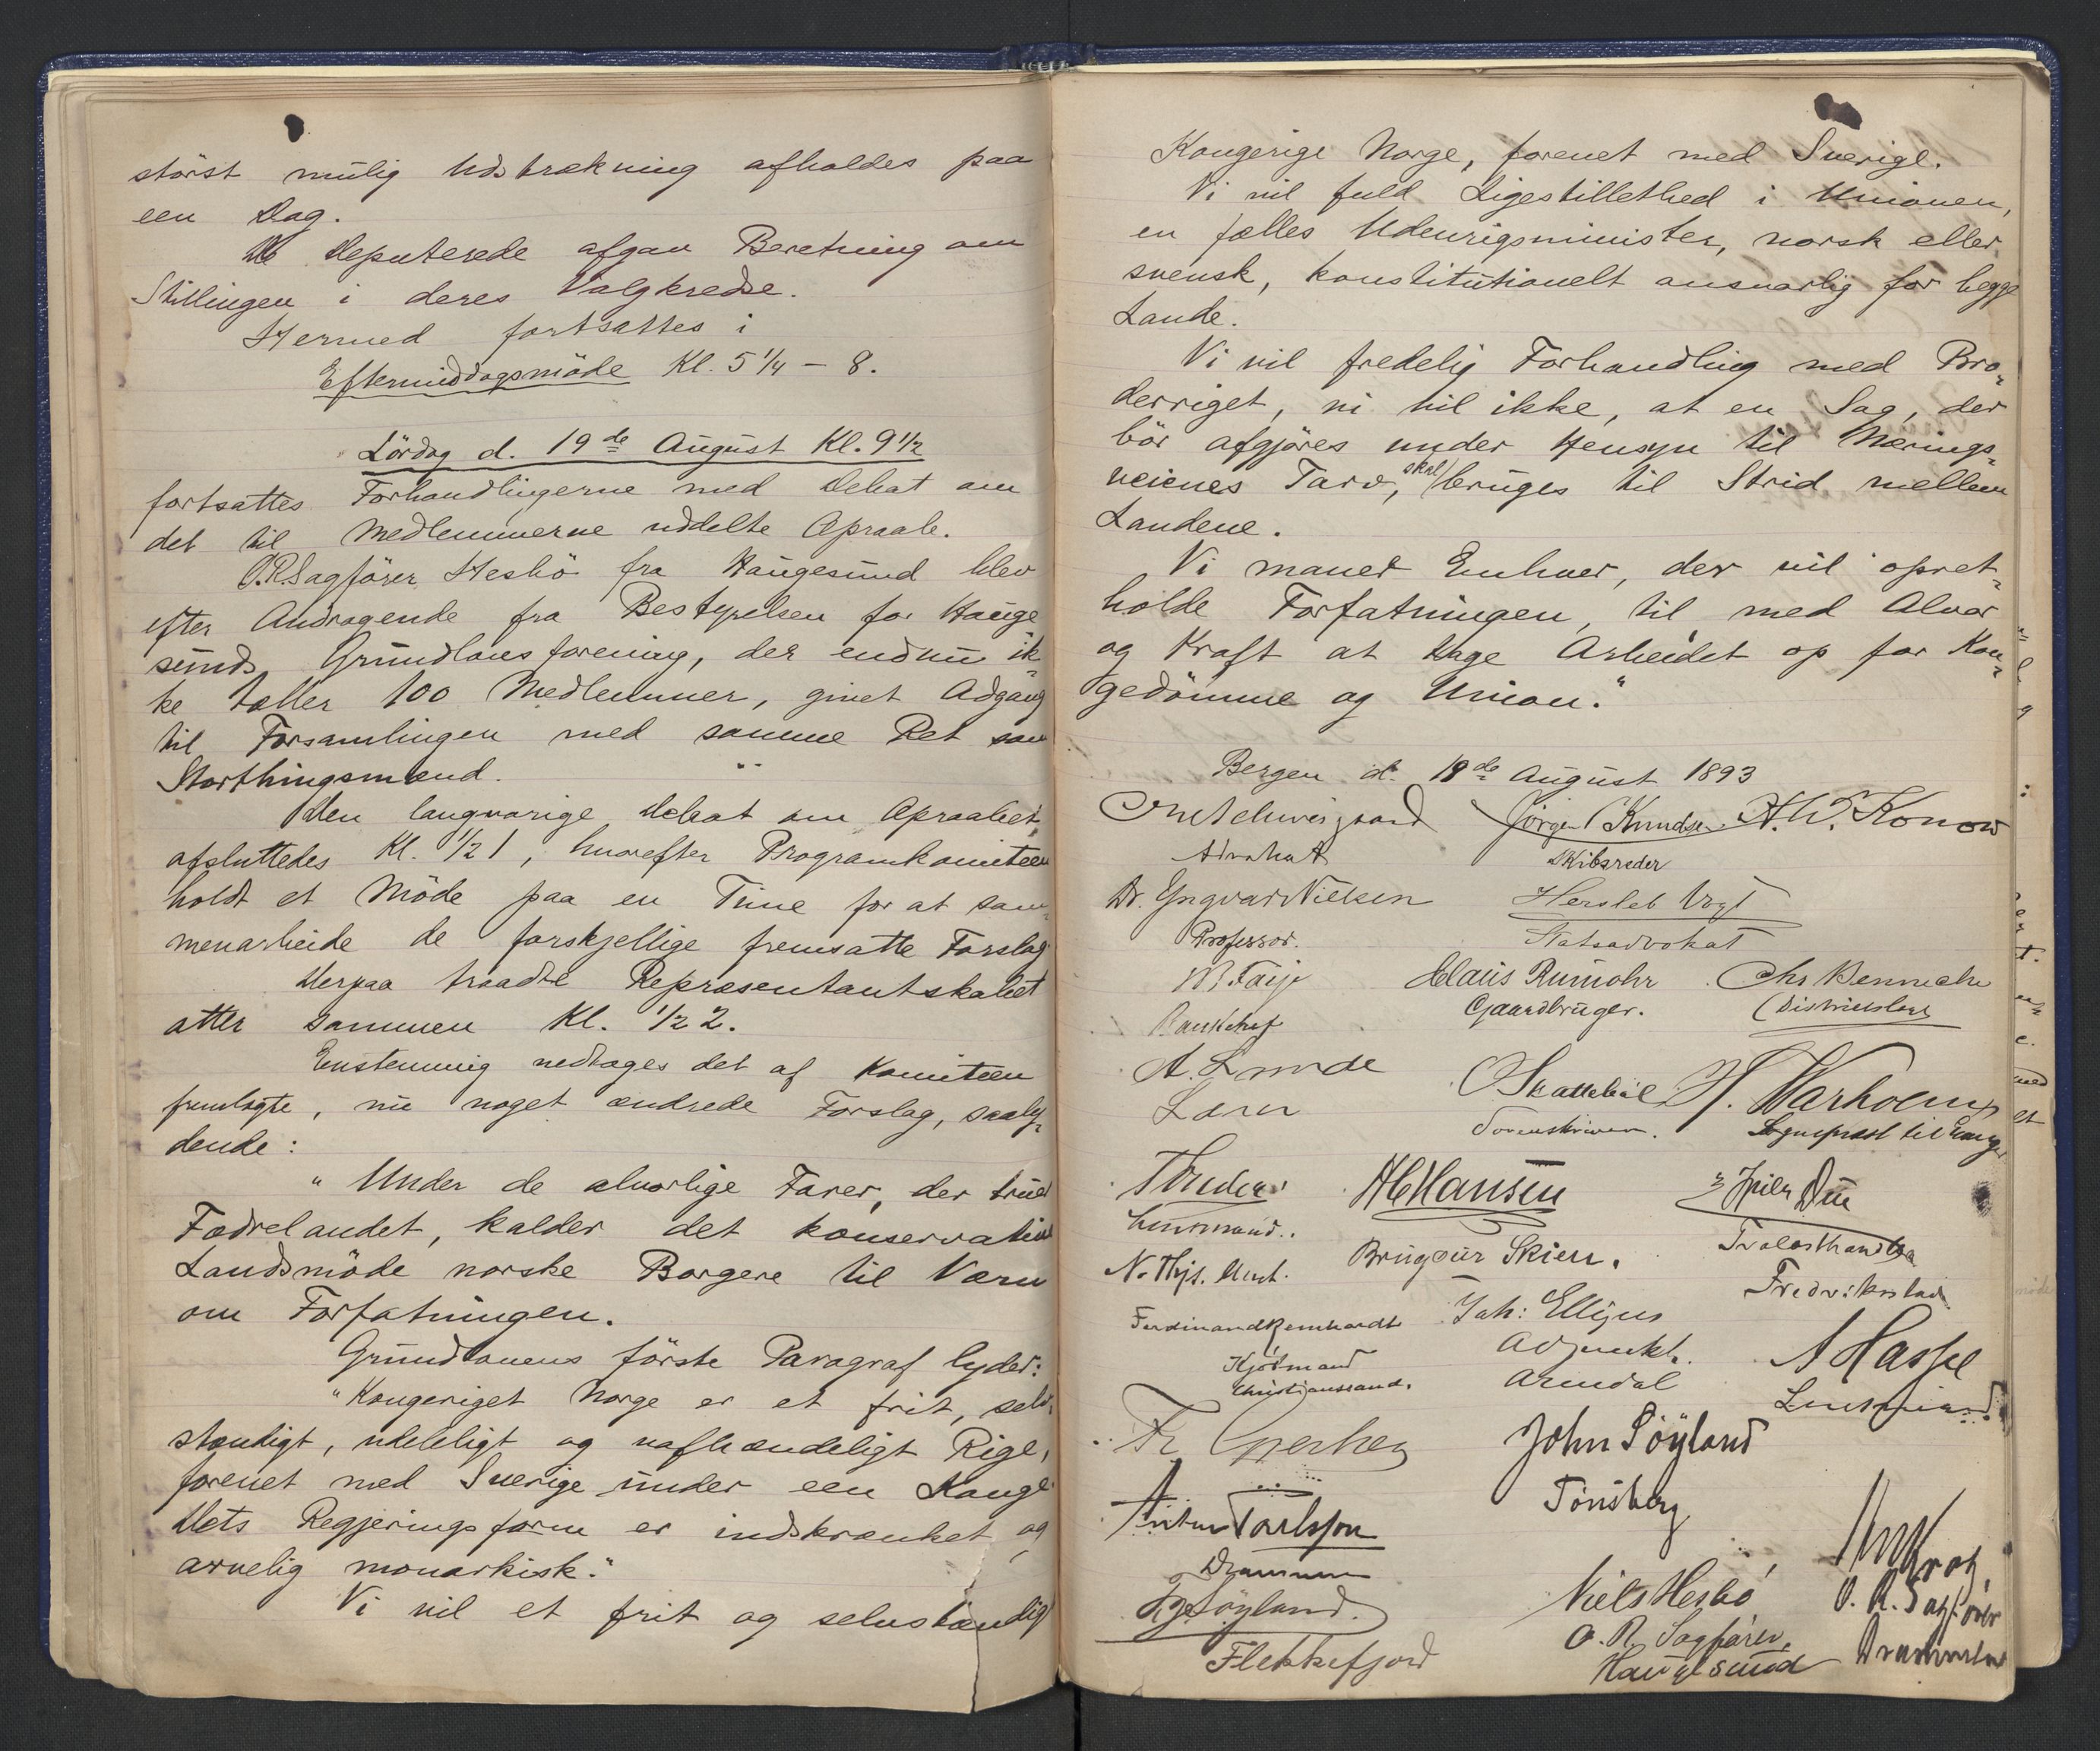 störst mülig Udstrækning afholdes paa
een Dag.
De Deputerede afgav Beretning om
Stillingen i deres Valgkredse.
Hermed fortsattes i
Eftermiddagsmöde Kl. 5 1/4 – 8.
Lördag d. 19de Aügust Kl. 9 1/2
fortsattes Forhandlingerne med Debat om
det til Medlemmerne uddelte Opraab.
O.R.Sagförer Hesbö fra Haügesund blev
efter Andragende fra Bestyrelsen for Haüge
sünds Gründlovsforening, der endnü ik-
ke tæller 100 Medlemmer, givet Adgang
til Forsamlingen med samme Ret som
Storthingsmænd.
Den langvarige Debat om Opraabet
afsluttedes Kl. 1/2 1, hvorefter Programkomiteen
holdt et Möde paa en Time for at sam-
menarbeide de forskjellige fremsatte Forslag
Derpaa traadte Repræsentantskabet
atter sammen Kl. 1/2 2.
Enstemmig vedtoges det af Komiteen
fremlagte, nu noget ændrede Forslag, saaly-
dende:
"Under de alvorlige Farer, der trüer
Fædrelandet, kalder det konservative
Landsmöde norske Borgere til Værn
om Forfatningen.
Gründlovens förste Paragraf lyder:
"Kongeriget Norge er et frit, selv-
stændigt, udeleligt og uafhændeligt Rige,
forenet med Sverige ünder een Konge.
Dets Regjeringsform er indskrænket og
arvelig monarkisk."
Vi vil et frit og selvstændigt
Kongerige Norge, forenet med Sverige.
Vi vil fuld Ligestillethed i Unionen,
en fælles Udenrigsminister, norsk eller
svensk, konstitütionelt ansvarlig for begge
Lande.
Vi vil fredelig Forhandling med Bro-
derriget, vi vil ikke, at en Sag, der
bör afgjöres under Hensyn til Nærings-
veienes Tarv, skal brüges til Strid mellem
Landene.
Vi maner Enhver, der vil opret-
holde Forfatningen, til med Alvor
og Kraft at tage Arbeidet op for Kon-
gedömme og Union."
Bergen d. 19de Aügust 1893
Jörgen C Knudsen A.W. Konow
Advokat Skibsreder
Dr. Yngvar Nielsen Hersleb Vogt
Professor. Statsadvokat
Claus Rümohr Chr
Bankchef Gaardbrüger. Distriktslæge
A. Lunde O Skattebøl H. Warholm
Sorenskriver. Sognepræst til
HCHansen
Lensmand.
N. Thjs. Brügeier Skien. Trælasthandler
Fredrikstad
Ferdinand Reinhardt Joh: Ellijus
Kjöbmand Adjunkt. A Hassel
Christianssand. Arendal Lensmand
John Söyland
Tönsberg
Anton Carlsson
Drammen
Söyland. Niels Hesbö O. R. Sagförer
Flekkefjord O. R. Sagförer, Drammen
Haügesünd